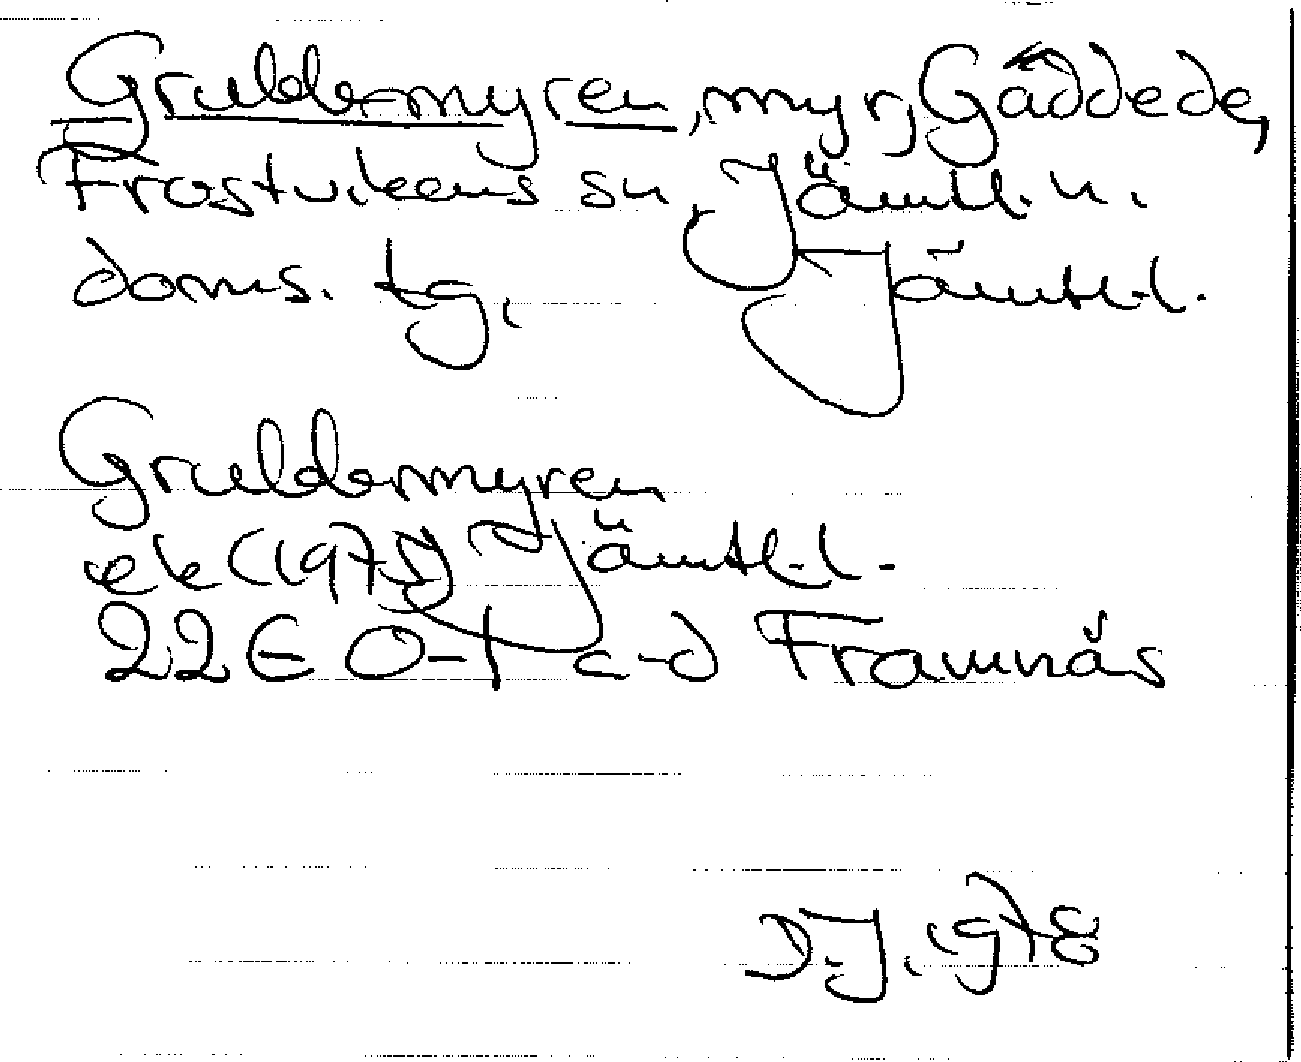 Grubbmyren, myr, Gäddede,
Frostvikens sn, Jämtl. n.
doms. tg, Jämtl.l.
Grubbmyren
ek (1975) Jämtl.l.
22E 0-1 c-d Framnäs
D.J. 1978